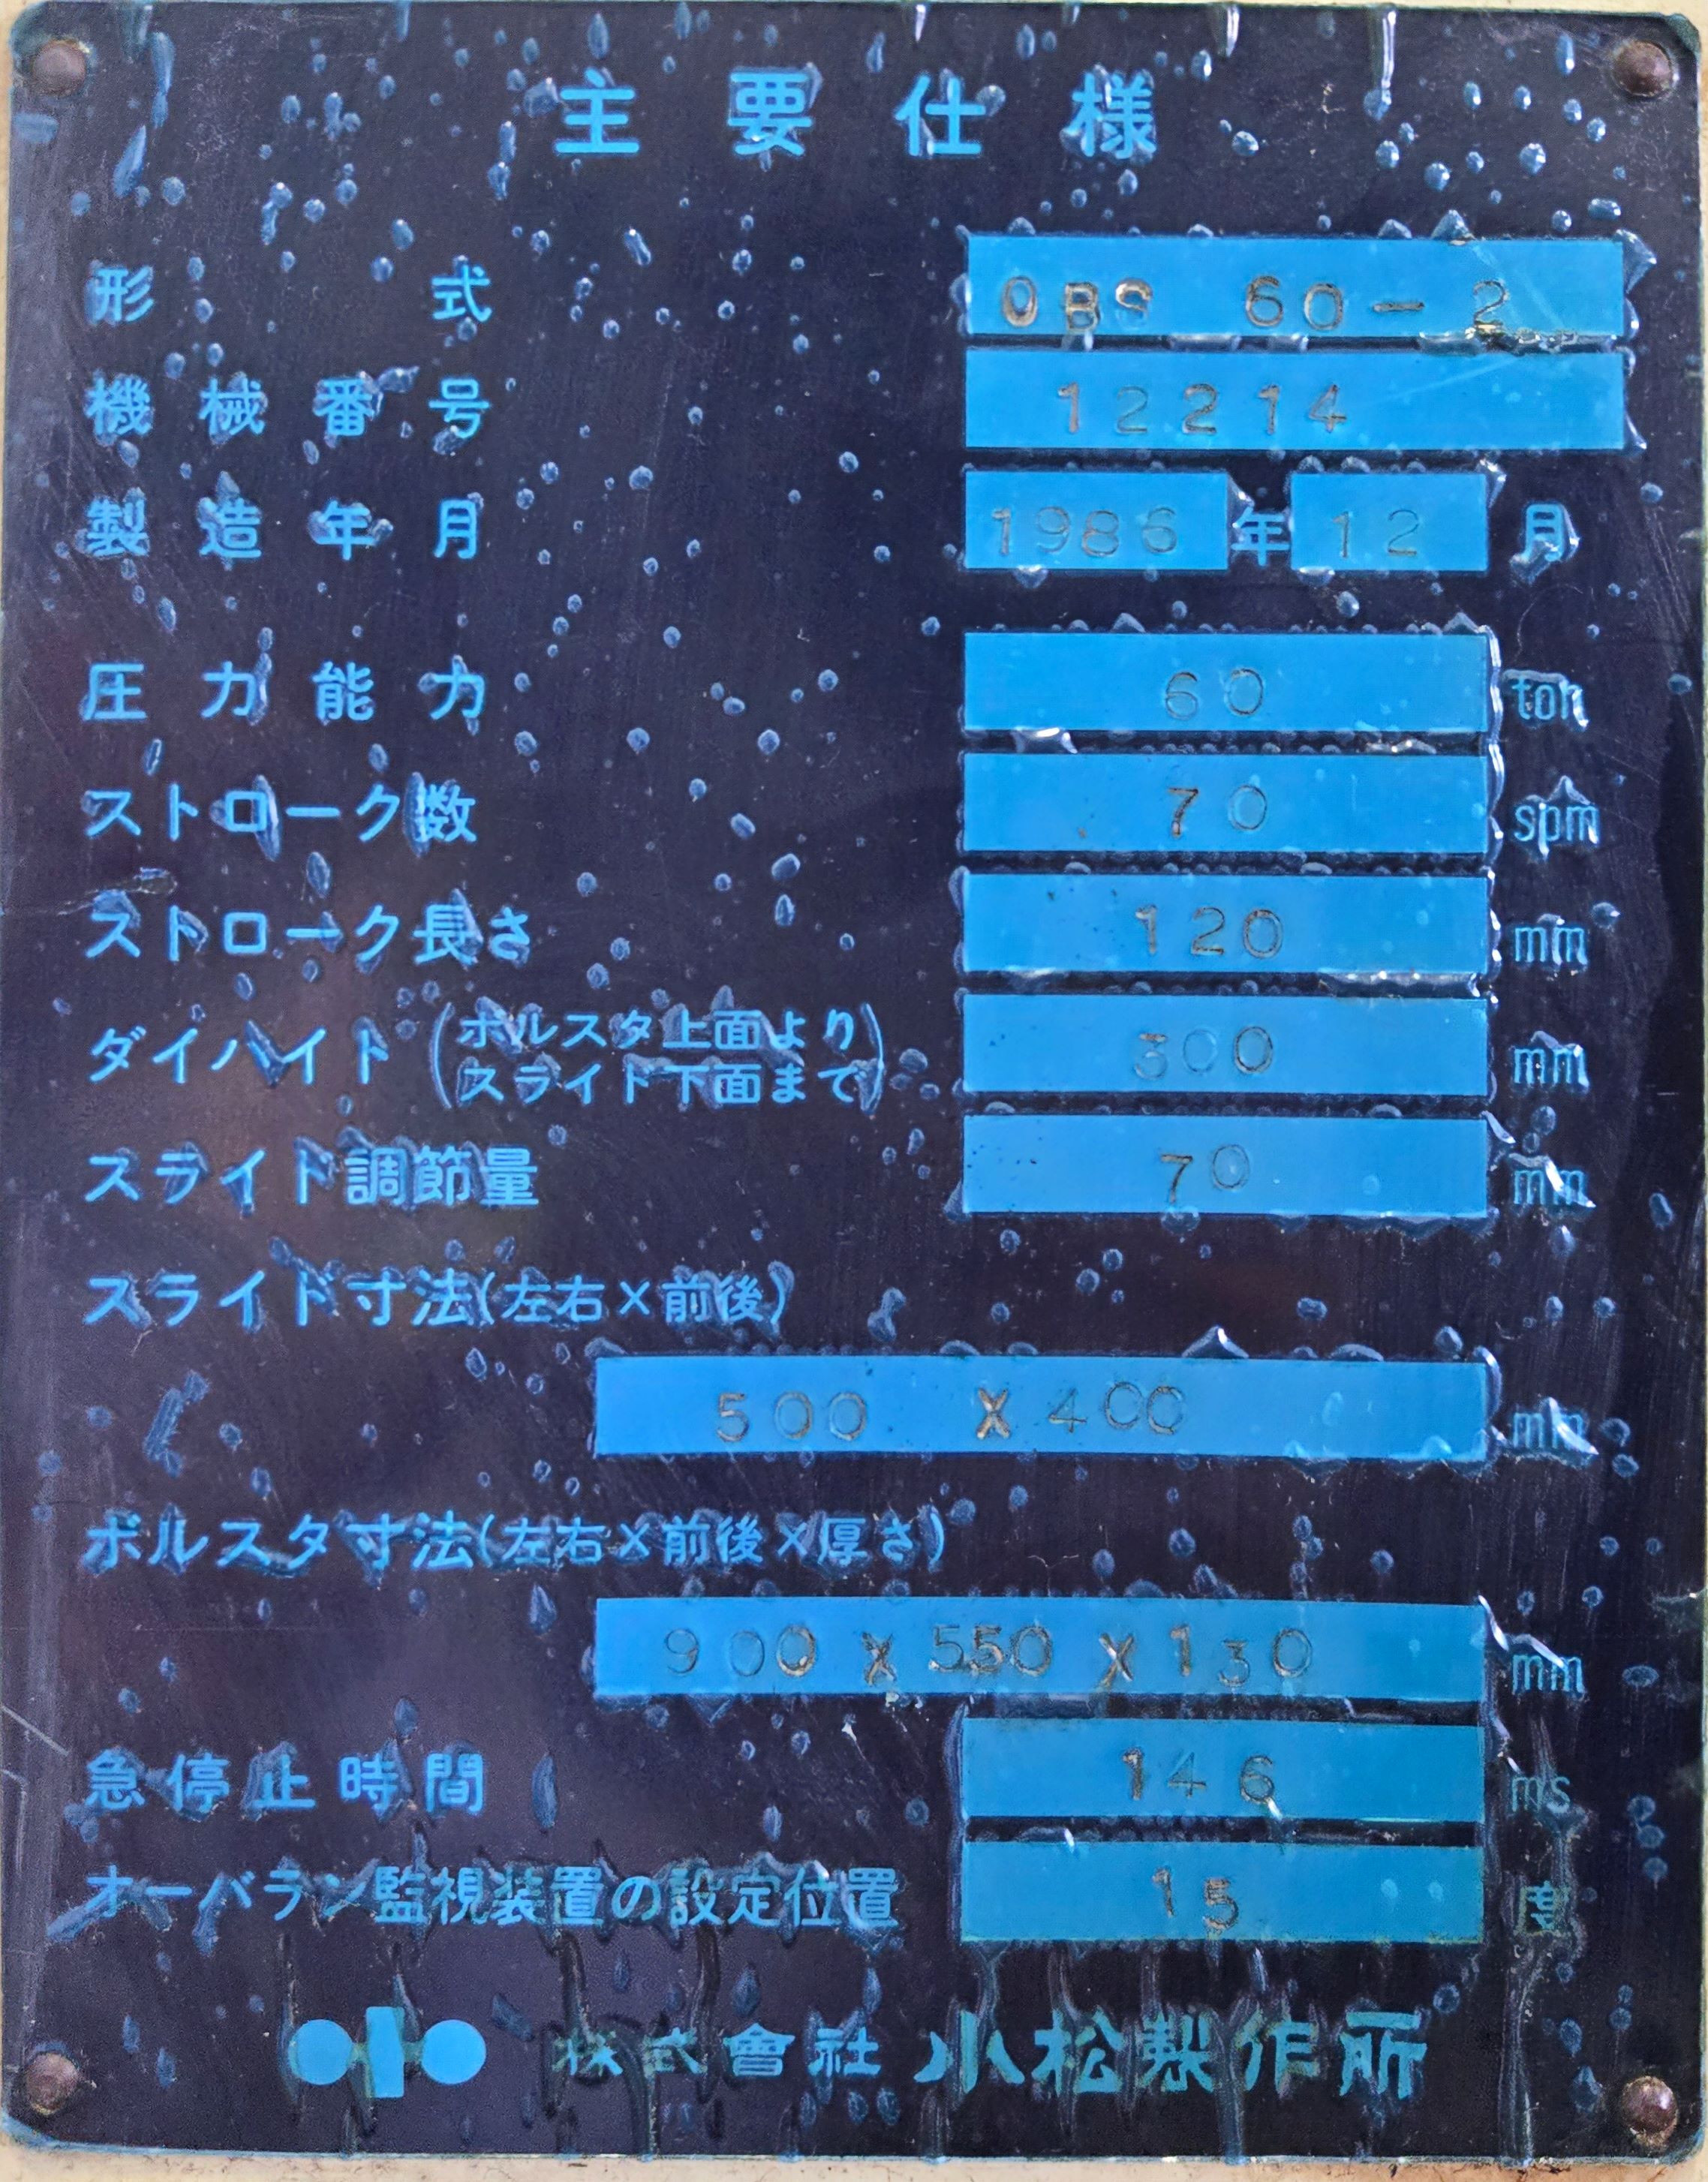 主要仕様
形式 OBS 60-2
機械番号 12214
製造年月 1986年12月
圧力能力 60 ton
ストローク数 70 spm
ストローク長さ 120 mm
ダイハイト(ボルスタ上面より
スライド下面まで) 300 mm
スライド調節量 70 mm
スライド寸法(左右×前後)
500 X 400 mm
ボルスタ寸法(左右×前後×厚さ)
900 X 550 X 130 mm
急停止時間 146 ms
オーバラン監視装置の設定位置 15 度
株式會社 小松製作所